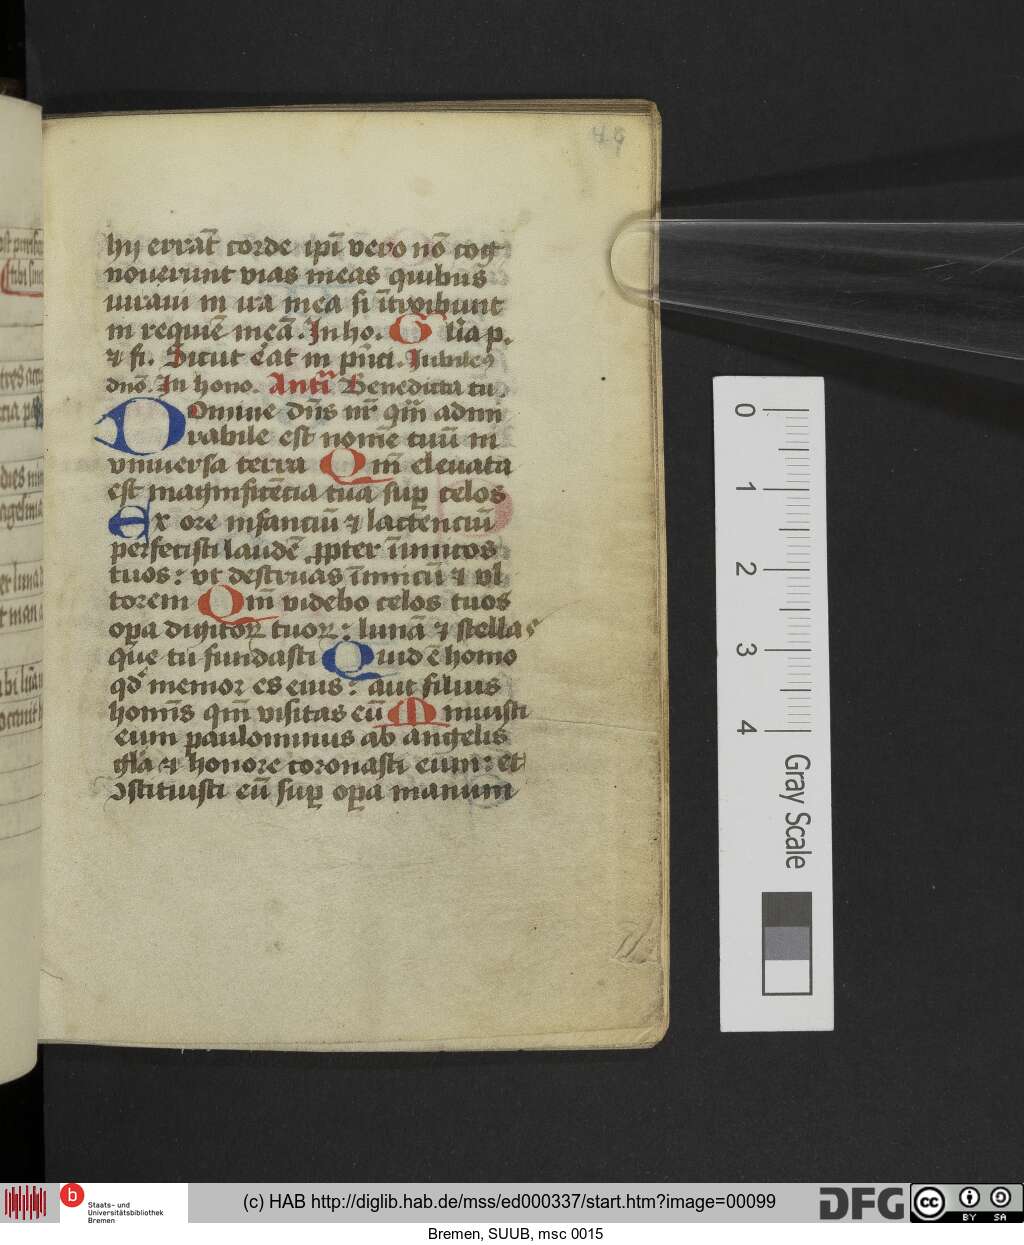 49
hij errāt corde ipi vero nō cog
nouerunt vias meas quibus
iuraui in ira mea si ītroibunt
in requiē meā. In ho. Glīa p.
⁊ fi. Sicut erat in pnci. Iubileꝫ
dnō. In hono. Antī Benedicta tu.
Domine dn̄s nr̄ qm̄ admi
rabile est nomē tuū in
vniuersa terra Qm̄ eleuata
est magnificēcia tua sup celos
Ex ore infanciū ⁊ lactenciū
perfecisti laudē ꝓpter īimicos
tuos: vt destruas īimicū ⁊ vl
torem Qm̄ videbo celos tuos
opa digitoꝝ tuoꝝ: lunā ⁊ stellas
que tu fundasti Quid ē homo
qd memor es eius: aut filius
homīs qm̄ visitas eū Minuisti
eum paulominus ab angelis
gla ⁊ honore coronasti eum: et
ꝯstituisti eū sup opa manuum
0
1
2
3
4
Gray Scale
b
Staats- und
Universitätsbibliothek
Bremen
(c) HAB http://diglib.hab.de/mss/ed000337/start.htm?image=00099
DFG
cc
BY SA
Bremen, SUUB, msc 0015